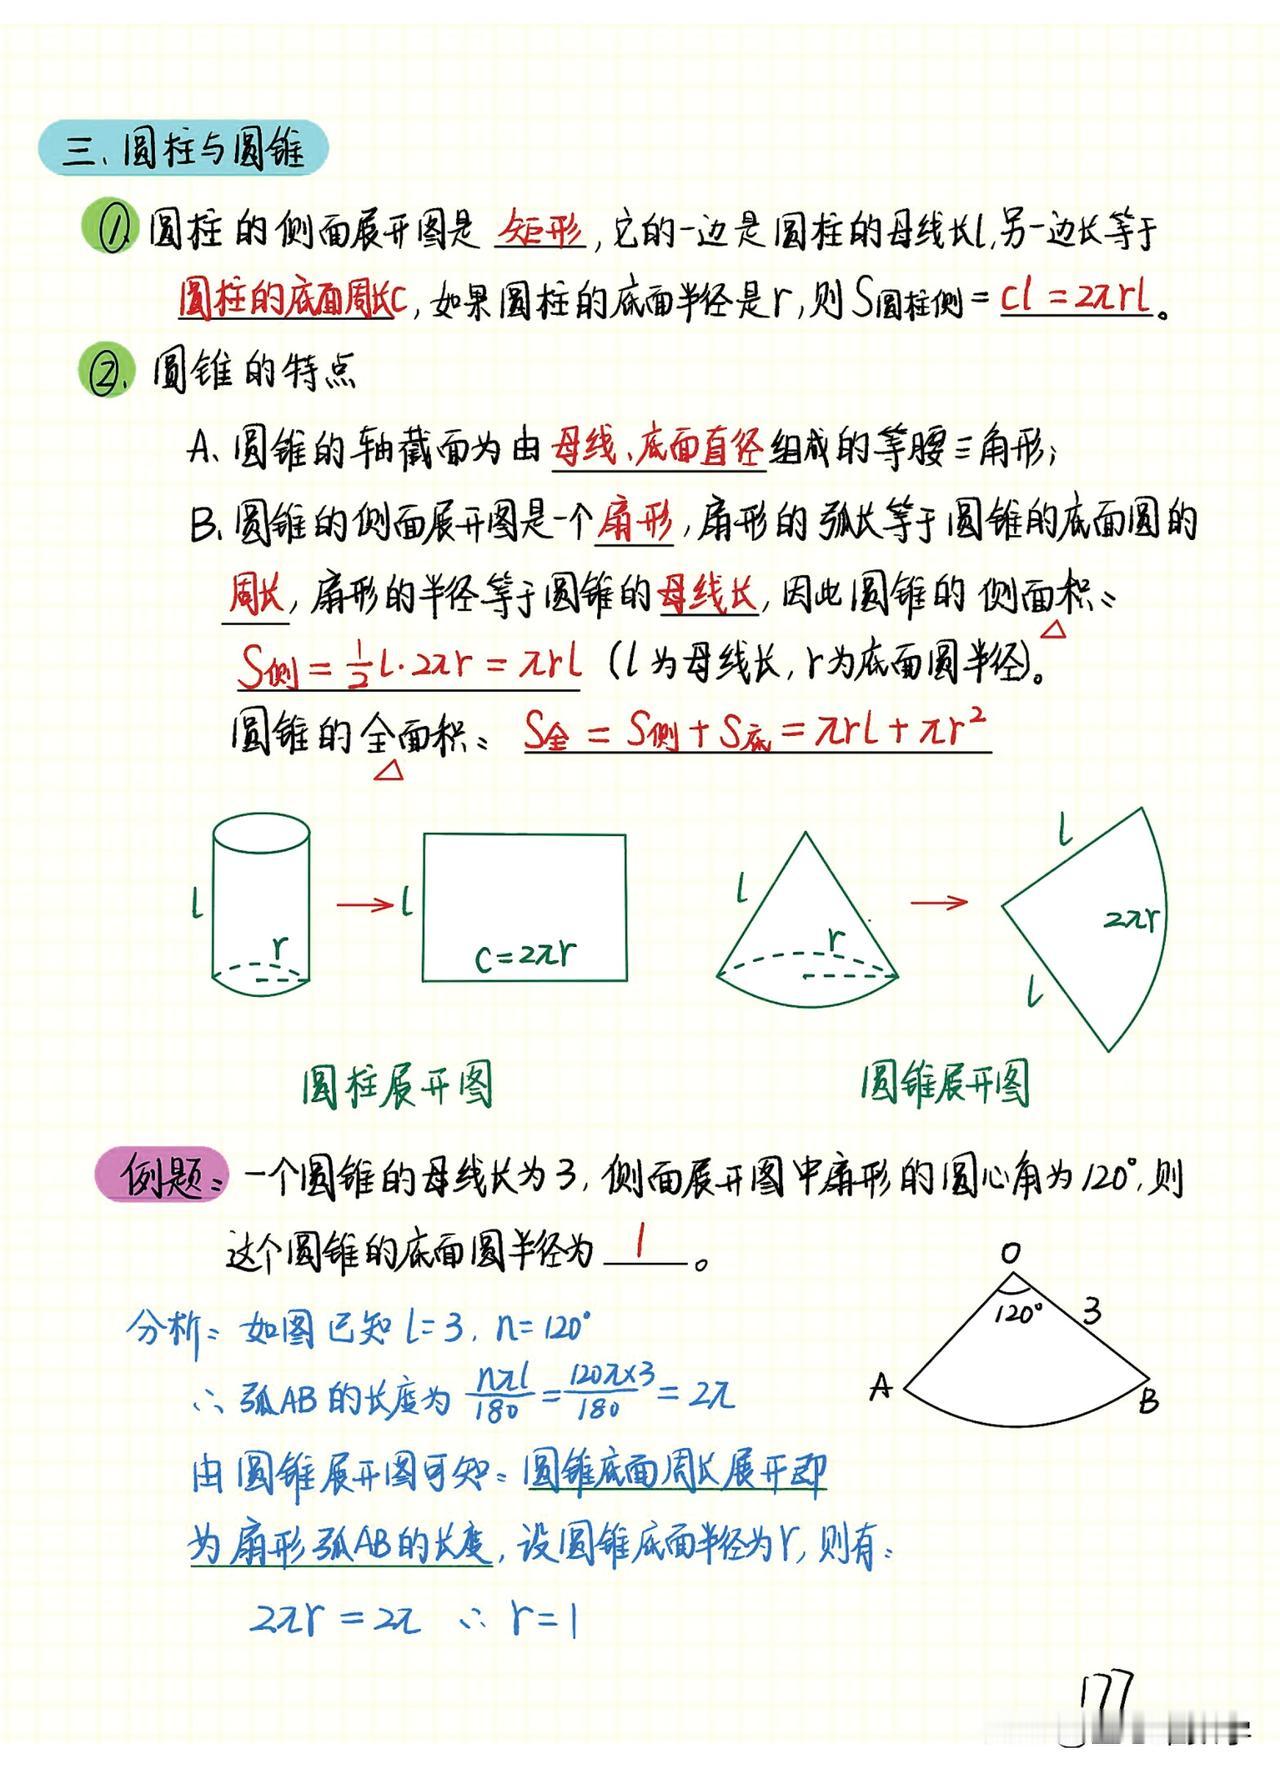 三、圆柱与圆锥
①、圆柱的侧面展开图是 矩形，它的一边是圆柱的母线长l，另一边长等于
圆柱的底面周长C，如果圆柱的底面半径是r，则S圆柱侧=Cl=2πrl。
②、圆锥的特点
A、圆锥的轴截面为由母线、底面直径组成的等腰三角形；
B、圆锥的侧面展开图是一个扇形，扇形的弧长等于圆锥的底面圆的
周长，扇形的半径等于圆锥的母线长，因此圆锥的侧面积：
△
S侧=½l·2πr=πrl（l为母线长，r为底面圆半径）。
圆锥的全面积：S全=S侧+S底=πrl+πr²
△
l r l C=2πr
l r l l 2πr
圆柱展开图 圆锥展开图
例题：一个圆锥的母线长为3，侧面展开图中扇形的圆心角为120°，则
这个圆锥的底面圆半径为 1 。
O 120° 3 A B
分析：如图已知l=3，n=120°
∴弧AB的长度为 nπl/180=120π×3/180=2π
由圆锥展开图可知：圆锥底面周长展开即
为扇形弧AB的长度，设圆锥底面半径为r，则有：
2πr=2π ∴r=1